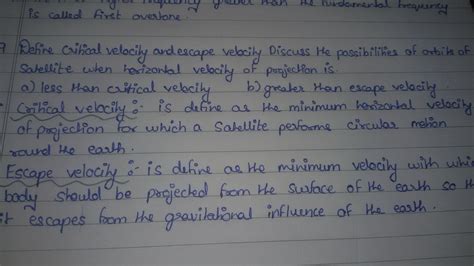 higher frequency greater than the fundamental frequency
is called first overtone.
Define Critical velocity and escape velocity Discuss the possibilities of orbits of
Satellite when horizontal velocity of projection is
a) less than critical velocity b) greater than escape velocity.
Critical velocity :- is define as the minimum horizontal velocity
of projection for which a Satellite performs circular motion
round the earth.
Escape velocity :- is define as the minimum velocity with
body should be projected from the surface of the earth so
it escapes from the gravitational influence of the earth.